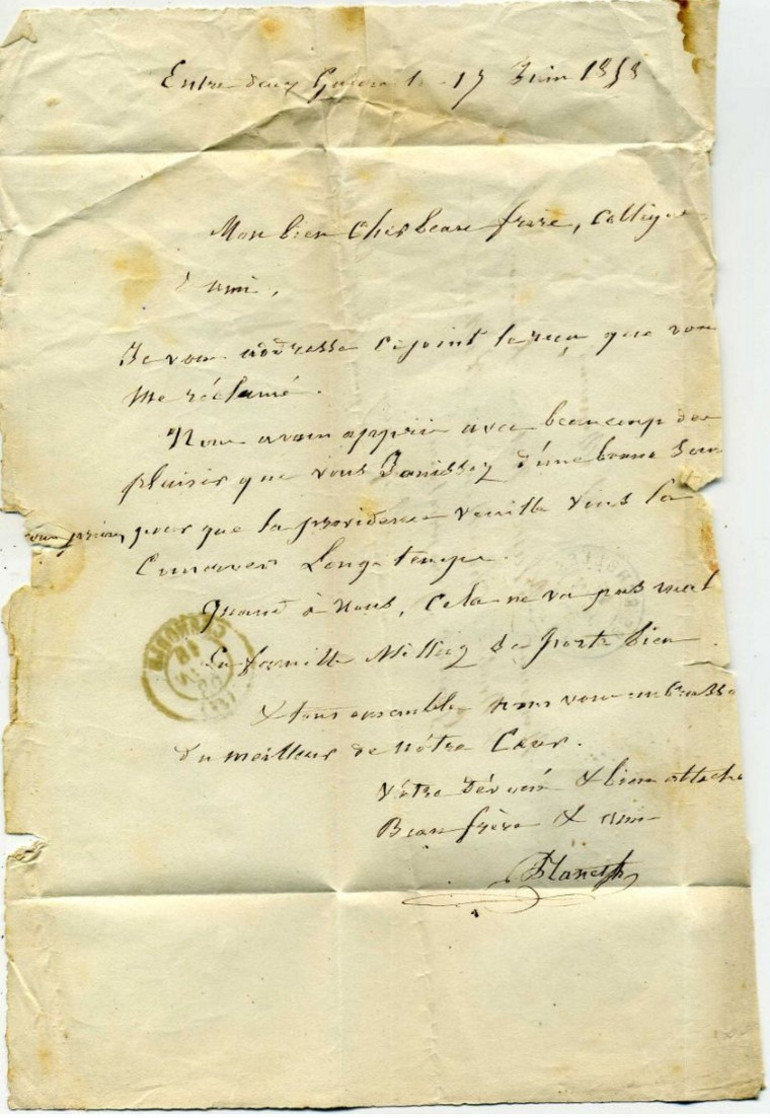 Entre deux Guiers le 17 Juin 1858
Mon bien cher beau frère, collègue
& ami,
Je vous addresse ci joint le reçu que vous
me réclamé.
Nous avons appris avec beaucoup de
plaisir que vous Jouissez d'une bonne San
prions, pour que la providence veuille vous la
Conserver Longs temps.
Quand à Nous, Cela ne va pas mal
La famille se porte bien.
& tous ensemble nous vous embrasso
du meilleur de nôtre Cœur.
Vôtre dévoué & bien attaché
Beau frère & ami